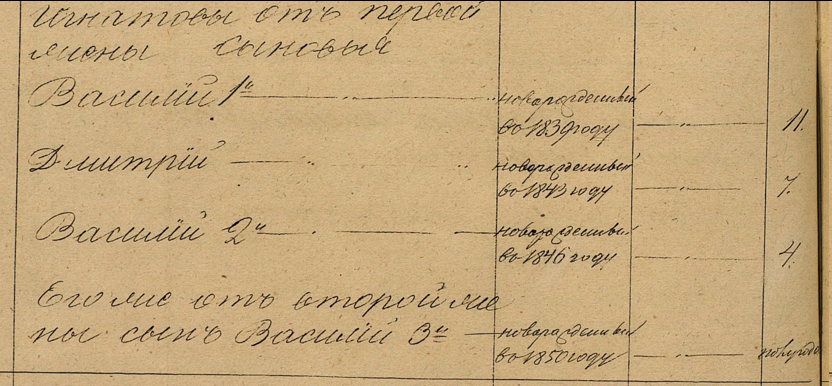 Игнатовы отъ первой
жены Сыновья
Василій 1й новорожденный
во 1839 году 11.
Дмитрій новорожденный
во 1843 году 7.
Василій 2й новорожденный
во 1846 году 4.
Его же отъ второй же
ны сынъ Василій 3й новорожденный
во 1850 году полугода